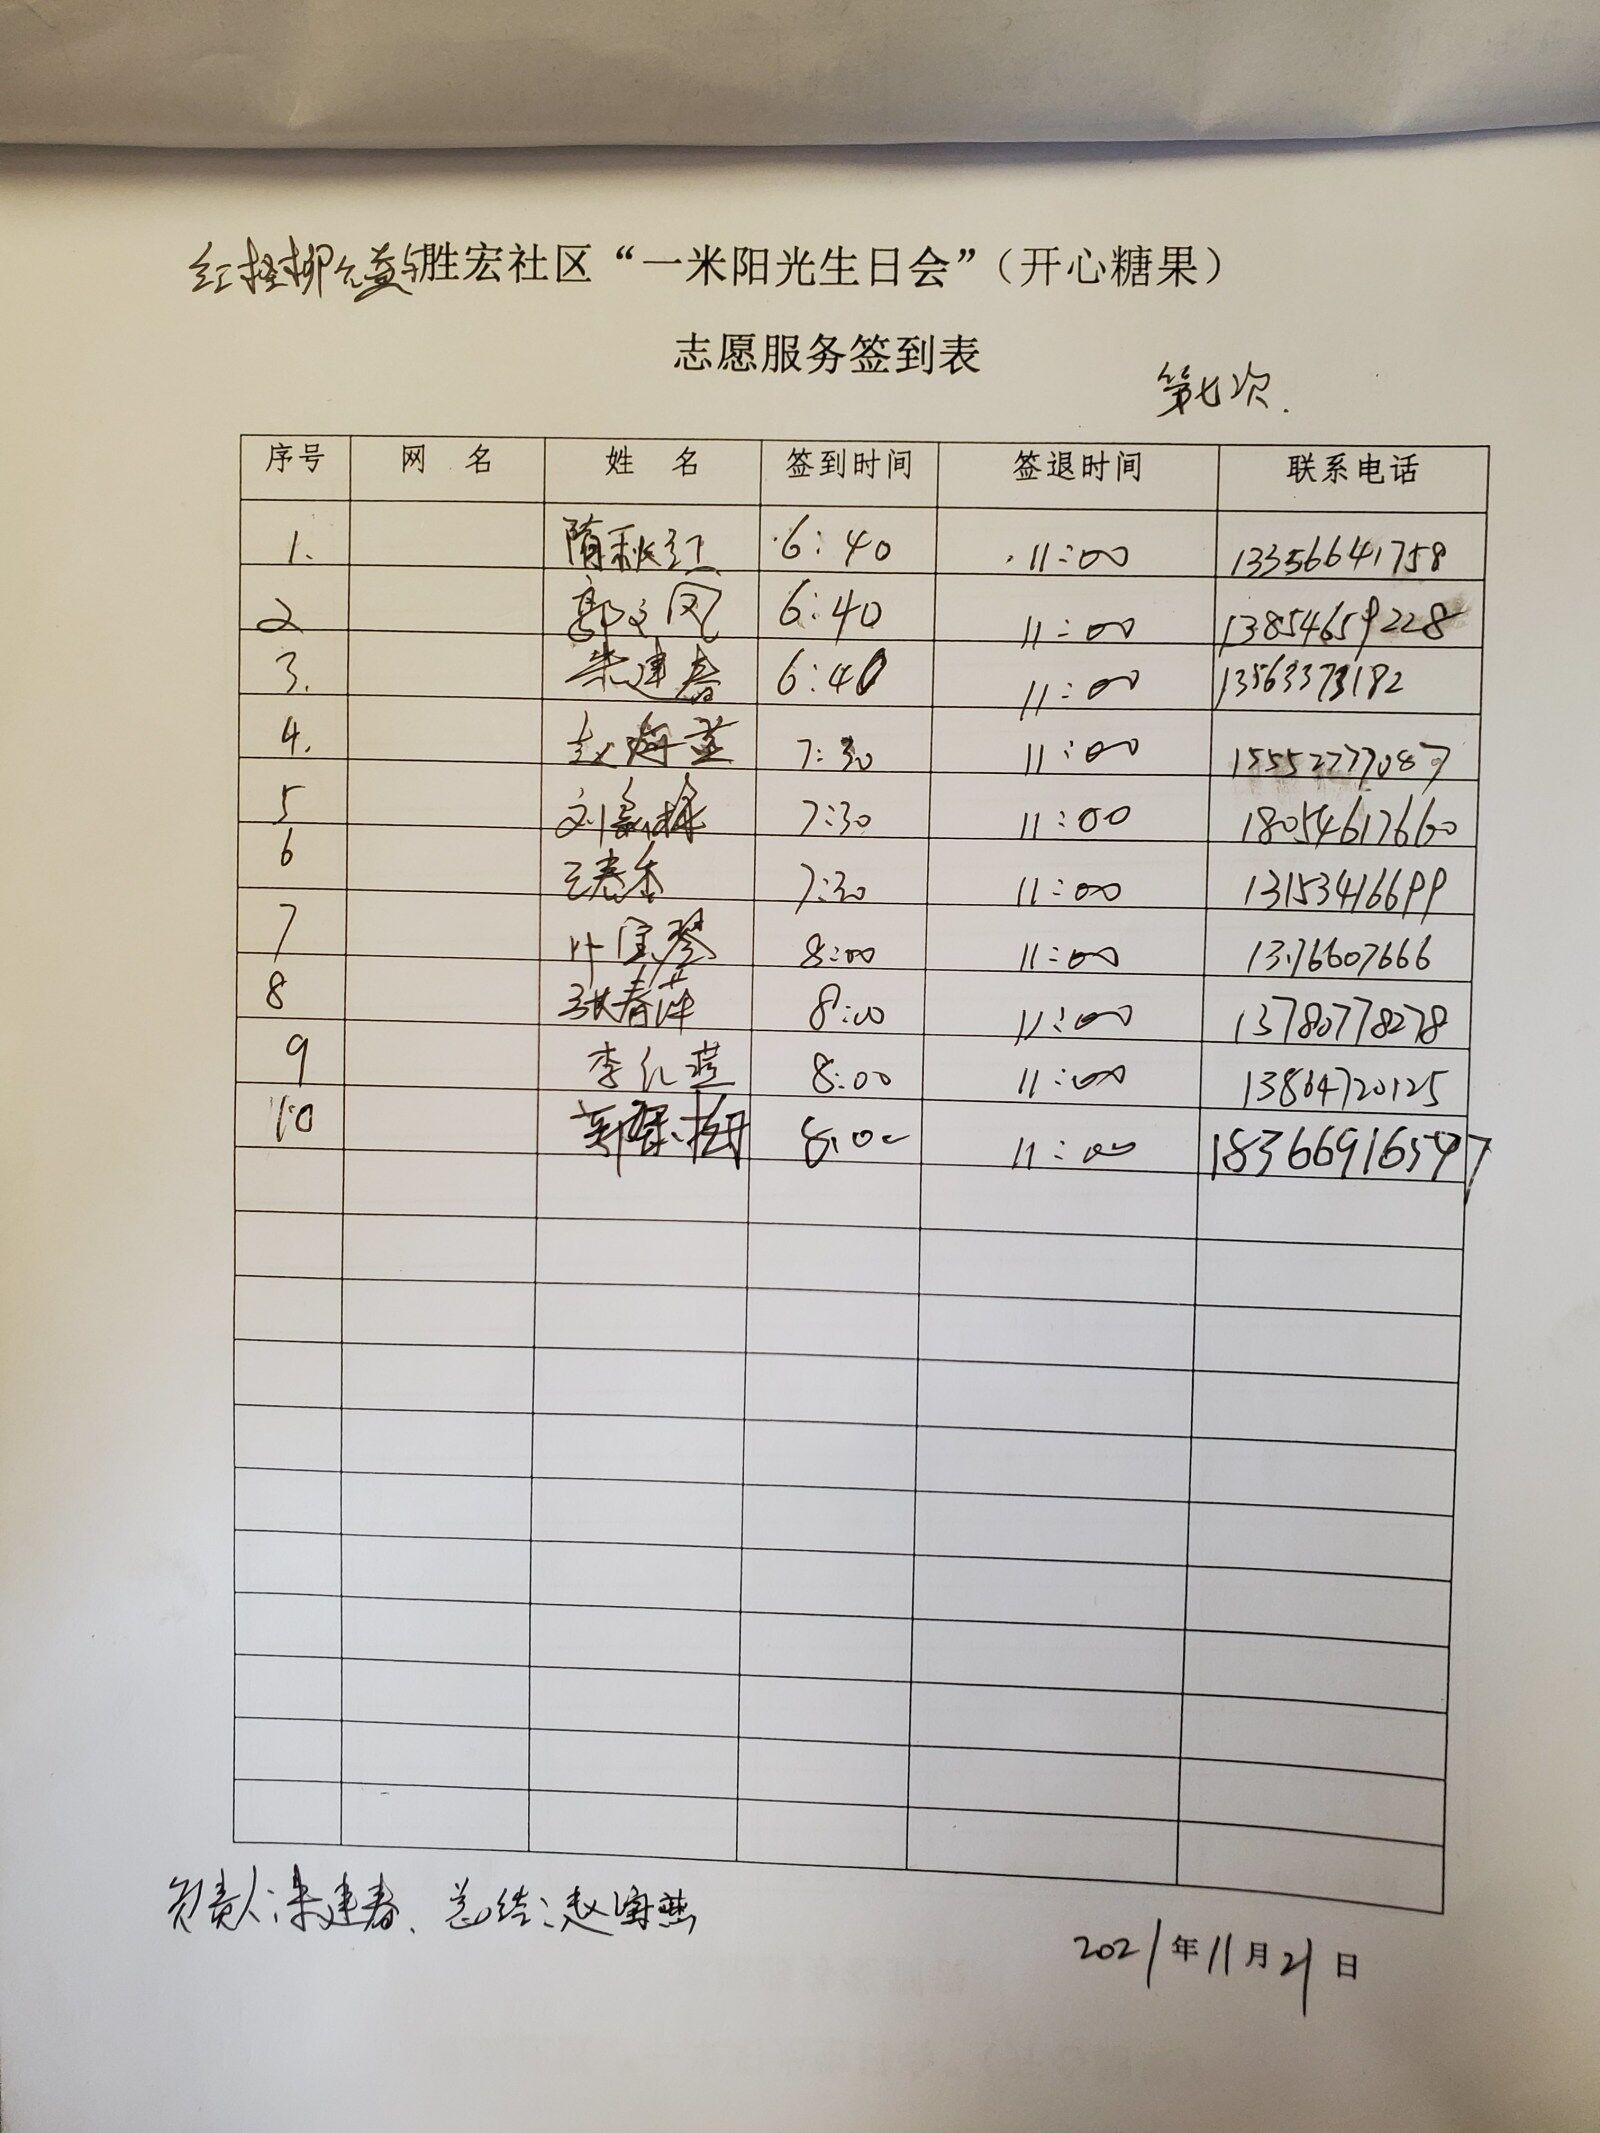 红柽柳公益与胜宏社区“一米阳光生日会”（开心糖果）
志愿服务签到表
第七次.
序号 网 名 姓 名 签到时间 签退时间 联系电话
1. 隋秋红 6:40 11:00 13356641758
2 郭文凤 6:40 11:00 13854659228
3. 朱建春 6:40 11:00 13563373182
4. 赵海燕 7:30 11:00 15552777087
5 刘 7:30 11:00 18054617660
6 王春香 7:30 11:00 13153416699
7 叶宝琴 8:00 11:00 13176607666
8 张春萍 8:00 11:00 13780778278
9 李红燕 8:00 11:00 13864720125
10 8:00 11:00 18366916547
负责人:朱建春、总结:赵海燕
2021年11月21日